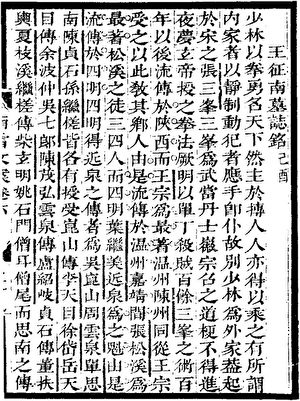 王征南墓誌銘 己酉
少林以拳勇名天下然主於搏人人亦得以乘之有所謂
內家者以靜制動犯者應手即仆故別少林為外家蓋起
於宋之張三峯三峯為武當丹士徽宗召之道梗不得進
夜夢玄帝授之拳法厥明以單丁殺賊百餘三峯之術百
年以後流傳於陝西而王宗為最著溫州陳州同從王宗
受之以此教其鄉人由是流傳於溫州嘉靖間張松溪為
最著松溪之徒三四人而四明葉繼美近泉為之魁由是
流傳於四明四明得近泉之傳者為吳崑山周雲泉單思
南陳貞石孫繼槎皆各有授受崑山傳李天目徐岱岳天
目傳余波仲吳七郎陳茂弘雲泉傳盧紹岐貞石傳董扶
輿夏枝溪繼槎傳柴玄明姚石門僧耳僧尾而思南之傳